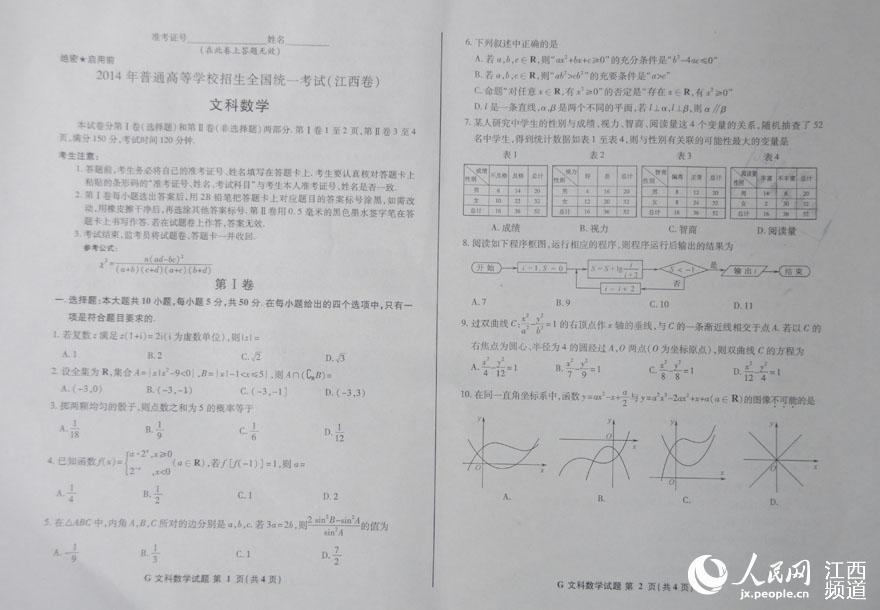 准考证号 姓名
(在此卷上答题无效)
绝密★启用前
2014 年普通高等学校招生全国统一考试(江西卷)
文科数学
本试卷分第Ⅰ卷(选择题)和第Ⅱ卷(非选择题)两部分.第Ⅰ卷 1 至 2 页,第Ⅱ卷 3 至 4
页,满分 150 分,考试时间 120 分钟.
考生注意:
1. 答题前,考生务必将自己的准考证号、姓名填写在答题卡上.考生要认真核对答题卡上
粘贴的条形码的“准考证号、姓名、考试科目”与考生本人准考证号、姓名是否一致.
2. 第Ⅰ卷每小题选出答案后,用 2B 铅笔把答题卡上对应题目的答案标号涂黑,如需改
动,用橡皮擦干净后,再选涂其他答案标号.第Ⅱ卷用 0.5 毫米的黑色墨水签字笔在答
题卡上书写作答.若在试题卷上作答,答案无效.
3. 考试结束,监考员将试题卷、答题卡一并收回.
参考公式:
χ²=n(ad-bc)²/((a+b)(c+d)(a+c)(b+d))
第Ⅰ卷
一. 选择题:本大题共 10 小题,每小题 5 分,共 50 分. 在每小题给出的四个选项中,只有一
项是符合题目要求的.
1. 若复数 z 满足 z(1+i)=2i(i 为虚数单位),则|z|=
A. 1 B. 2 C. √2 D. √3
2. 设全集为 R,集合 A={x|x²-9<0},B={x|-1<x≤5},则 A∩(∁RB)=
A. (-3,0) B. (-3,-1) C. (-3,-1] D. (-3,3)
3. 掷两颗均匀的骰子,则点数之和为 5 的概率等于
A. 1/18 B. 1/9 C. 1/6 D. 1/12
4. 已知函数 f(x)={a·2ˣ,x≥0 2⁻ˣ,x<0 (a∈R),若 f[f(-1)]=1,则 a=
A. 1/4 B. 1/2 C. 1 D. 2
5. 在△ABC 中,内角 A,B,C 所对的边分别是 a,b,c. 若 3a=2b,则(2 sin²B-sin²A)/sin²A 的值为
A. -1/9 B. 1/3 C. 1 D. 7/2
G 文科数学试题 第 1 页(共 4 页)
6. 下列叙述中正确的是
A. 若 a,b,c∈R,则“ax²+bx+c≥0”的充分条件是“b²-4ac≤0”
B. 若 a,b,c∈R,则“ab²>cb²”的充要条件是“a>c”
C. 命题“对任意 x∈R,有 x²≥0”的否定是“存在 x∈R,有 x²≥0”
D. l 是一条直线,α,β 是两个不同的平面,若 l⊥α,l⊥β,则 α∥β
7. 某人研究中学生的性别与成绩、视力、智商、阅读量这 4 个变量的关系,随机抽查了 52
名中学生,得到统计数据如表 1 至表 4,则与性别有关联的可能性最大的变量是
表1 表2 表3 表4
成绩 性别 不及格 及格 总计 视力 性别 好 差 总计 智商 性别 偏高 正常 总计 阅读量 性别 丰富 不丰富 总计
男 6 14 20 男 4 16 20 男 8 12 20 男 14 6 20
女 10 22 32 女 12 20 32 女 8 24 32 女 2 30 32
总计 16 36 52 总计 16 36 52 总计 16 36 52 总计 16 36 52
A. 成绩 B. 视力 C. 智商 D. 阅读量
8. 阅读如下程序框图,运行相应的程序,则程序运行后输出的结果为
开始 i=1,S=0 S=S+lg i/(i+2) S<-1 是 输出 i 结束
i=i+2 否
A. 7 B. 9 C. 10 D. 11
9. 过双曲线 C:x²/a²-y²/b²=1 的右顶点作 x 轴的垂线,与 C 的一条渐近线相交于点 A. 若以 C 的
右焦点为圆心、半径为 4 的圆经过 A,O 两点(O 为坐标原点),则双曲线 C 的方程为
A. x²/4-y²/12=1 B. x²/7-y²/9=1 C. x²/8-y²/8=1 D. x²/12-y²/4=1
10. 在同一直角坐标系中,函数 y=ax²-x+a/2 与 y=a²x³-2ax²+x+a(a∈R)的图像不可能的是
y y y y
O x O x O x O x
A. B. C. D.
G 文科数学试题 第 2 页(共 4 页)
人民网 江西频道
jx.people.cn